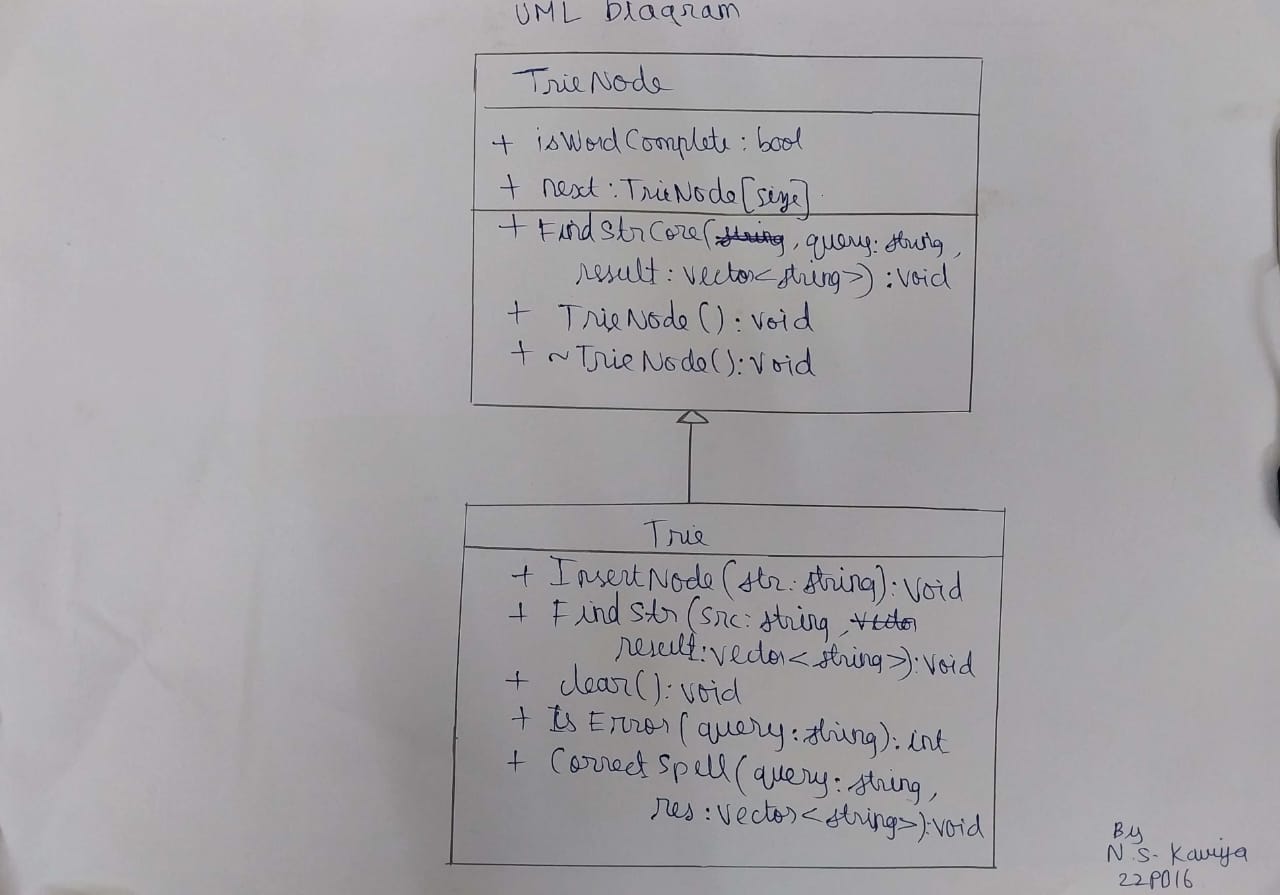 UML Diagram
TrieNode
+ isWordComplete : bool
+ next : TrieNode[size]
+ FindStrCore(string, query: string,
result : vector<string>) : void
+ TrieNode() : void
+ ~TrieNode() : void
Trie
+ InsertNode (str: string) : void
+ FindStr (src: string, vector
result: vector<string>) : void
+ clear() : void
+ IsError (query : string) : int
+ CorrectSpell (query : string,
res : vector<string>) : void
By
N.S. Kaviya
22PO16